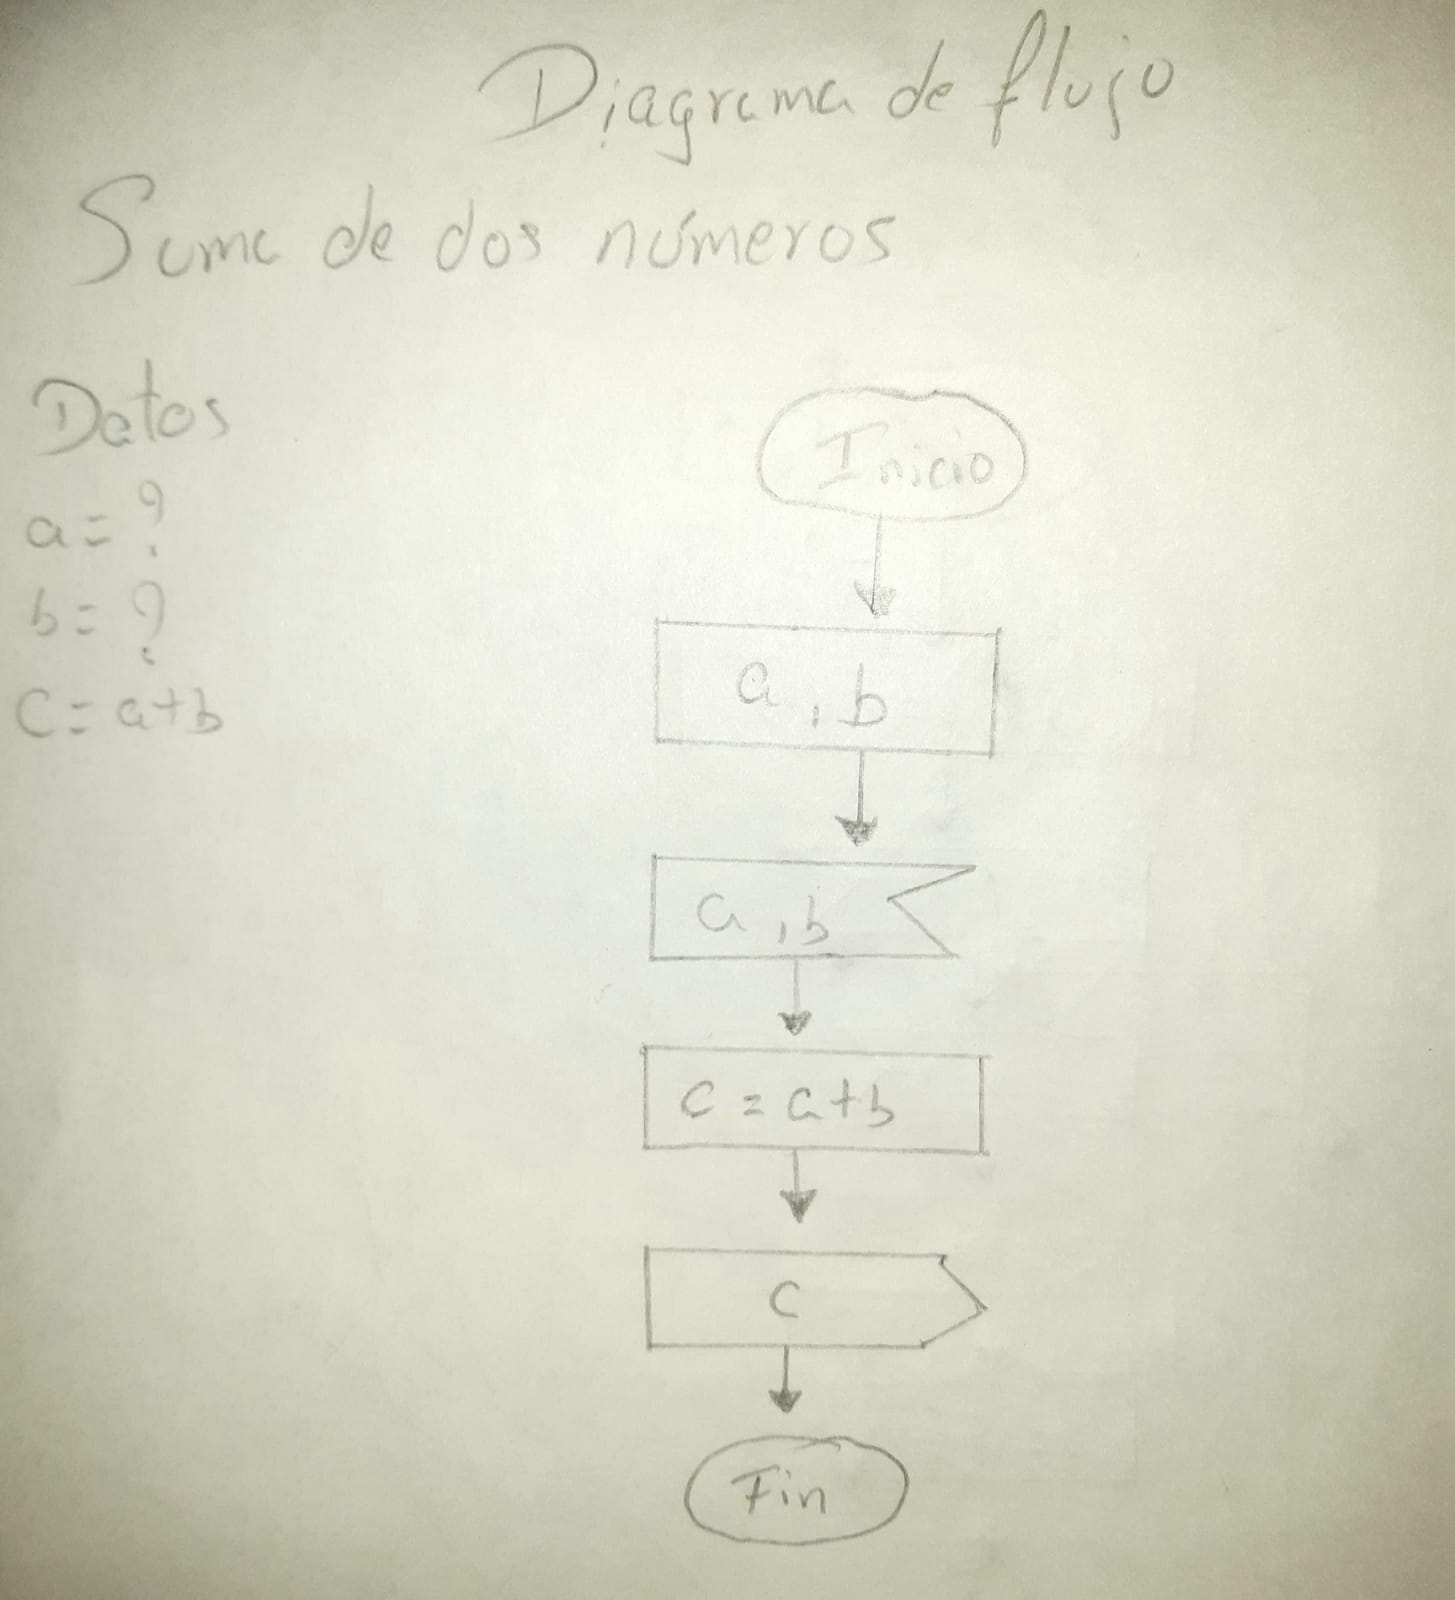 Diagrama de flujo
Suma de dos números
Datos
a = ?
b = ?
C = a+b
Inicio
a, b
a, b
C = a+b
C
Fin